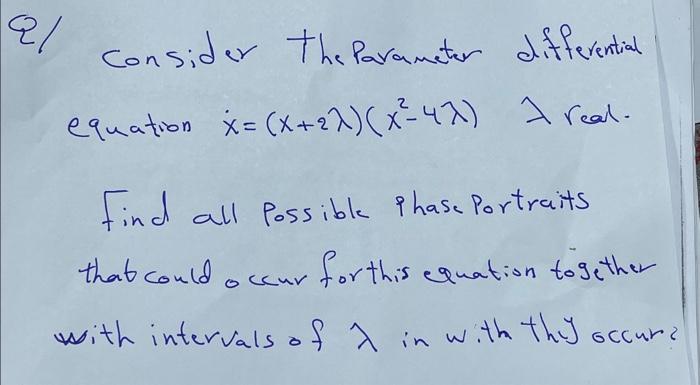 Q/ consider the Parameter differential
equation ẋ = (x+2λ)(x²-4λ) λ real.
find all Possible Phase Portraits
that could occur for this equation together
with intervals of λ in with they occur?